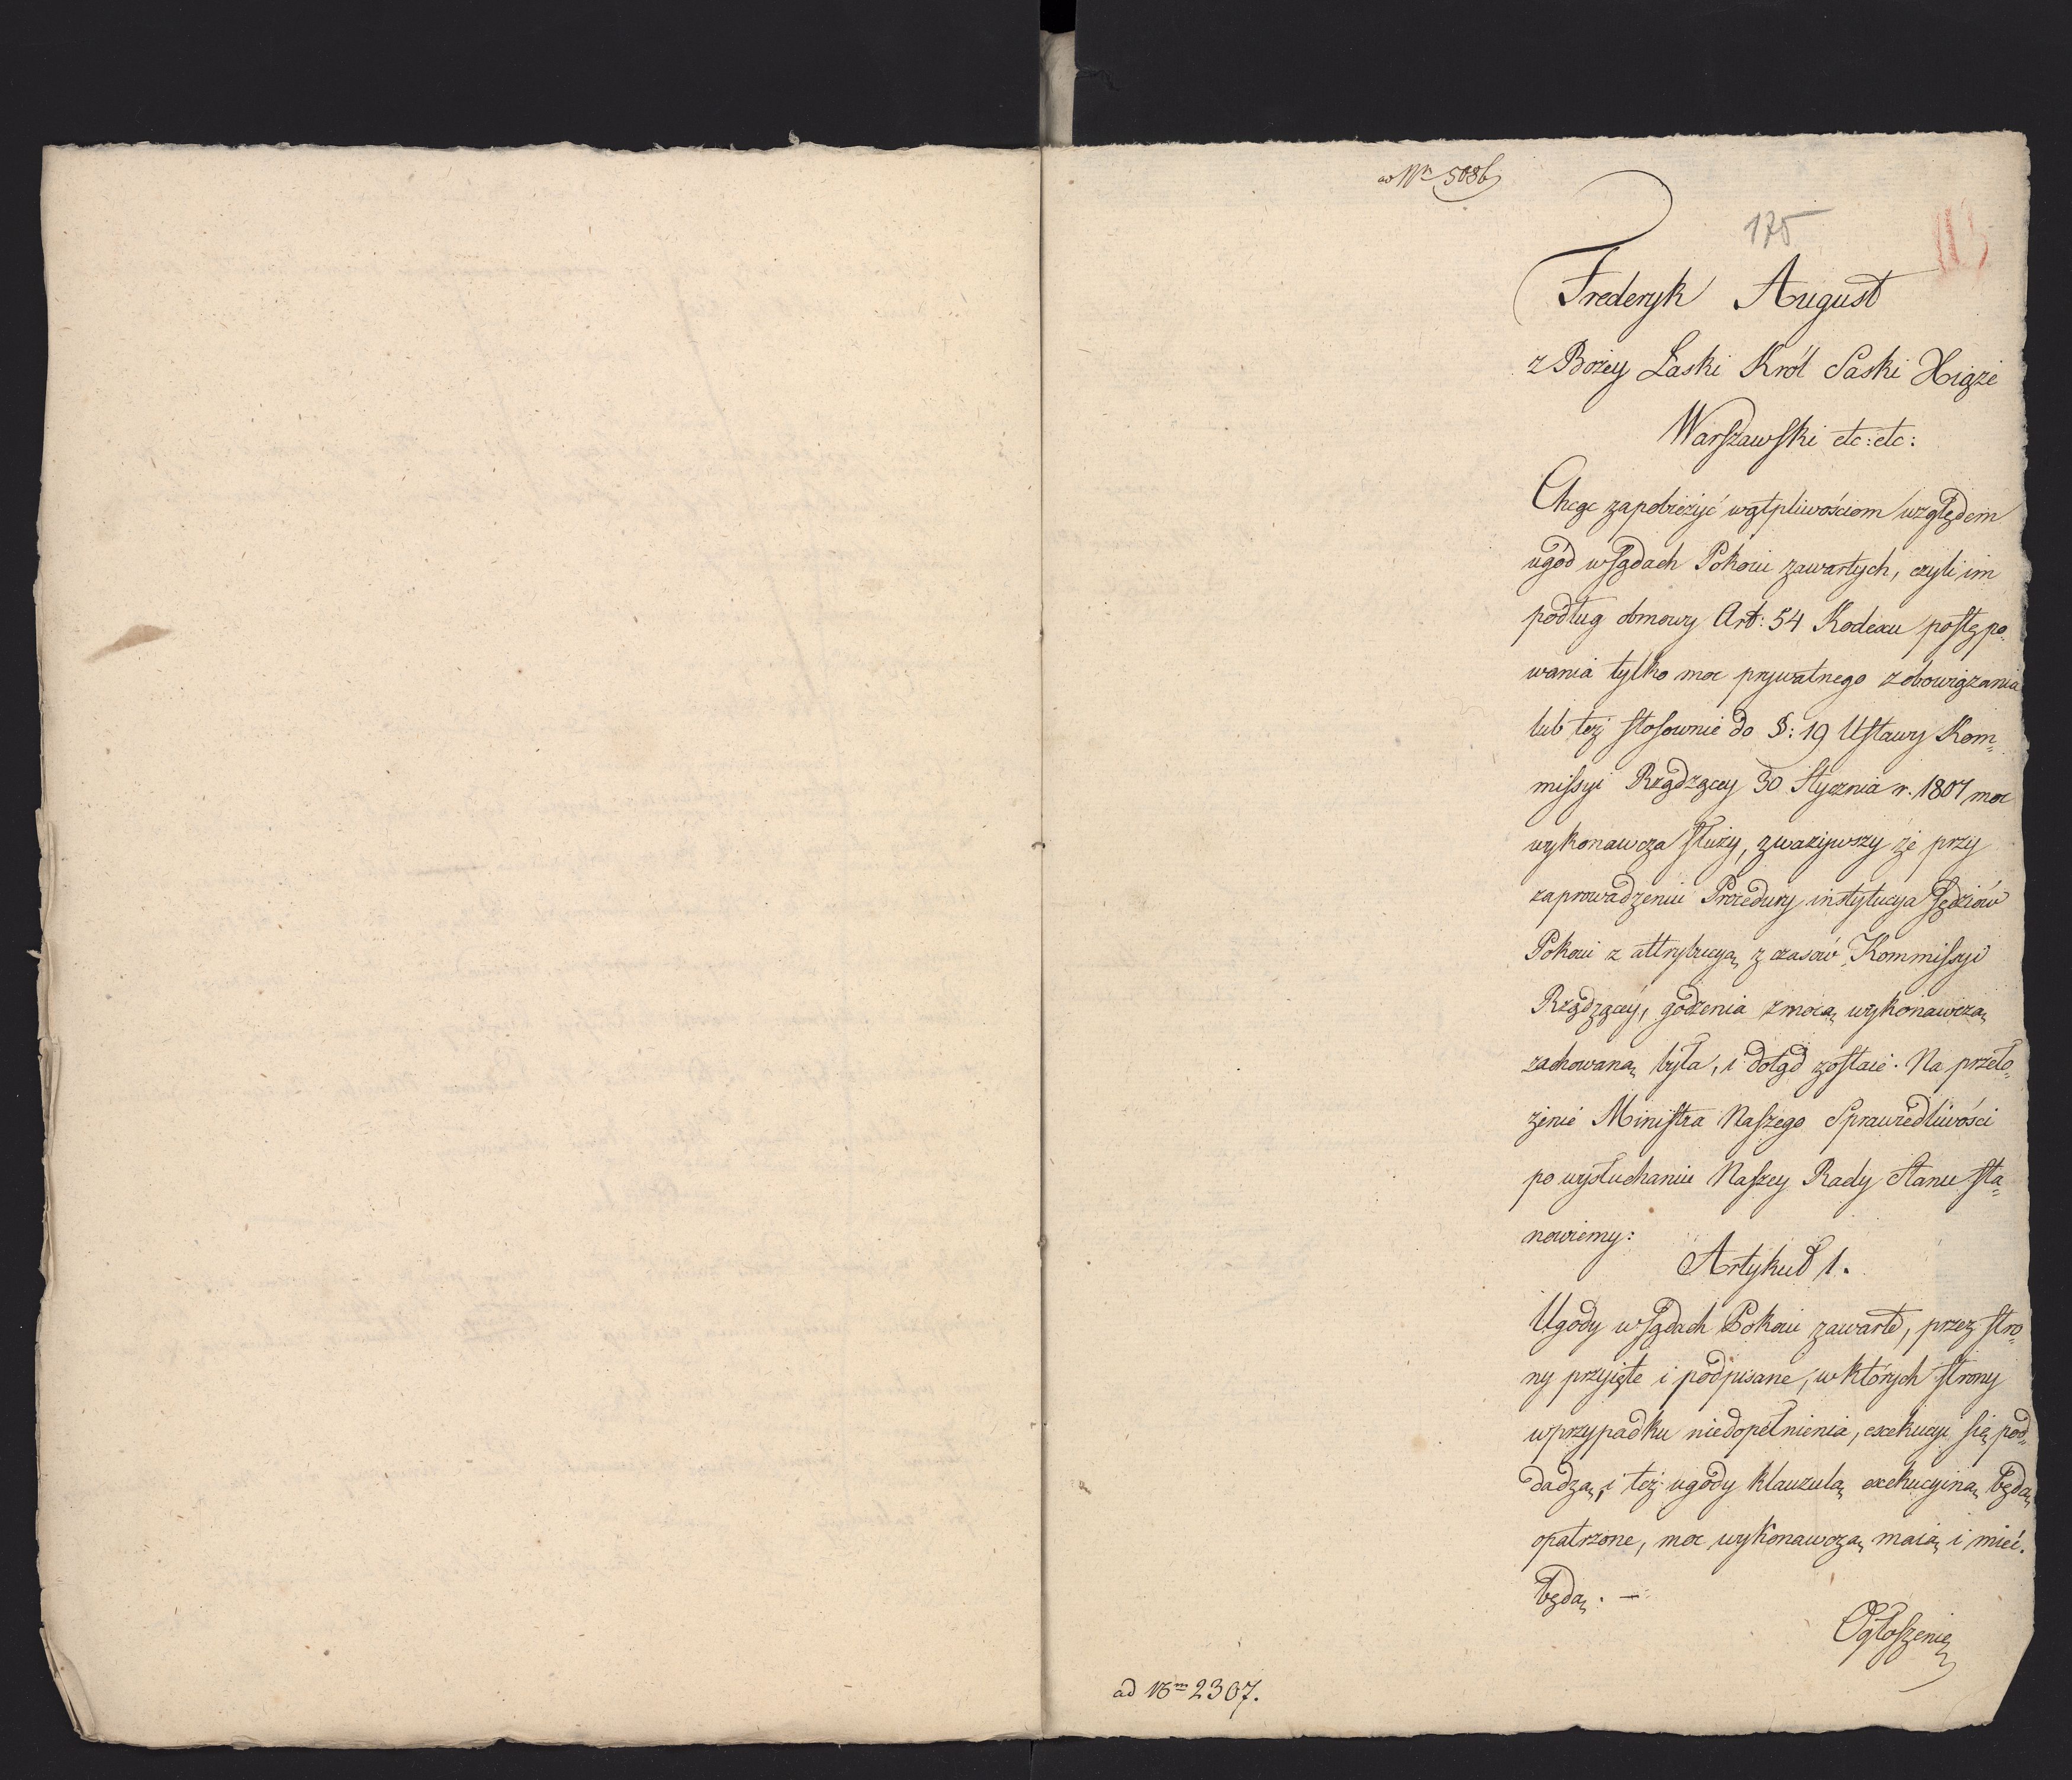 ad Nr 5086
175
Frederyk August
z Bożey Łaski Król Saski Xiąże
Warszawski etc: etc:
Chcąc zapobieżyć wątpliwościom względem
ugód w Sądach Pokoiu zawartych, czyli im
podług osnowy Art: 54 Kodexu postępo-
wania tylko moc prywatnego zobowiązania
lub też stosownie do §: 19 Ustawy Kom-
missyi Rządzącey 30 Stycznia r. 1807 moc
wykonawcza służy, zważywszy że przy
zaprowadzeniu Procedury instytucya Sędziów
Pokoiu z attrybucyą z czasów Kommissyi
Rządzącey, godzenia z mocą wykonawczą
zachowaną była, i dotąd zostaie. Na przeło-
żenie Ministra Naszego Sprawiedliwości
po wysłuchaniu Naszey Rady Stanu sta-
nowiemy:
Artykuł 1.
Ugody w Sądach Pokoiu zawarte, przez stro-
ny przyięte i podpisane, w których strony
w przypadku niedopełnienia, exekucyi się pod-
dadzą, i też ugody klauzulą exekucyiną będą
opatrzone, moc wykonawczą maią i mieć
będą. —
Ogłoszenie
ad Num 2307.